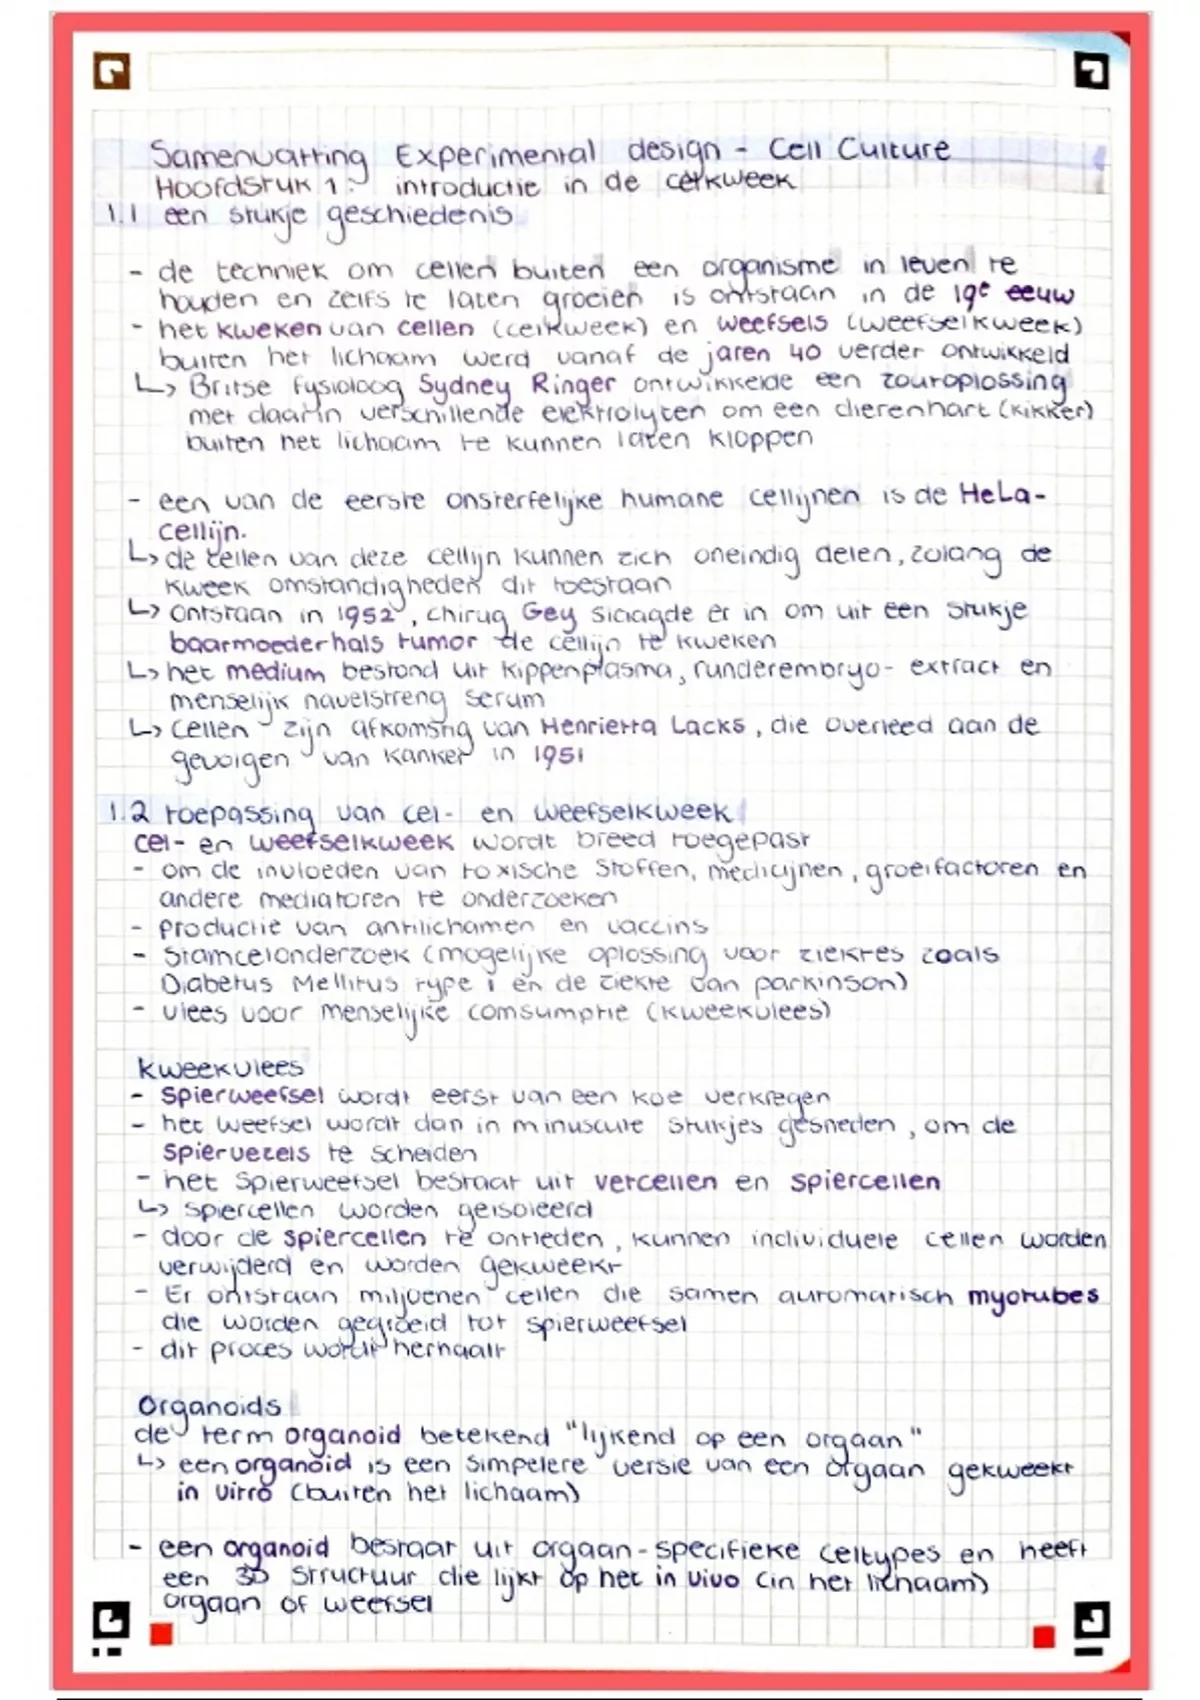 Samenvatting Experimental design - Cell Culture
Hoofdstuk 1: introductie in de celkweek
1.1 een stukje geschiedenis
- de techniek om cellen buiten een organisme in leven te
houden en zelfs te laten groeien is ontstaan in de 19e eeuw
- het kweken van cellen (celkweek) en weefsels (weefselkweek)
buiten het lichaam werd vanaf de jaren 40 verder ontwikkeld
↳ Britse fysioloog Sydney Ringer ontwikkelde een zoutoplossing
met daarin verschillende elektrolyten om een dierenhart (kikker)
buiten het lichaam te kunnen laten kloppen
- een van de eerste onsterfelijke humane cellijnen is de HeLa-
cellijn.
↳ de cellen van deze cellijn kunnen zich oneindig delen, zolang de
kweek omstandigheden dit toestaan
↳ ontstaan in 1952, chirug Gey slaagde er in om uit een stukje
baarmoederhals tumor de cellijn te kweken
↳ het medium bestond uit kippenplasma, runderembryo- extract en
menselijk navelstreng serum
↳ cellen zijn afkomstig van Henrietta Lacks, die overleed aan de
gevolgen van kanker in 1951
1.2 toepassing van cel- en weefselkweek
cel- en weefselkweek wordt breed toegepast
- om de invloeden van toxische stoffen, medicijnen, groeifactoren en
andere mediatoren te onderzoeken
- productie van antilichamen en vaccins
- stamcelonderzoek (mogelijke oplossing voor ziektes zoals
Diabetus Mellitus type 1 en de ziekte van parkinson)
- vlees voor menselijke comsumptie (kweekvlees)
kweekvlees
- Spierweefsel wordt eerst van een koe verkregen
- het weefsel wordt dan in minuscule stukjes gesneden, om de
spiervezels te scheiden
- het spierweefsel bestaat uit vetcellen en spiercellen
↳ spiercellen worden geisoleerd
- door de spiercellen te ontleden, kunnen individuele cellen worden
verwijderd en worden gekweekt
- Er ontstaan miljoenen cellen die samen automatisch myotubes
die worden gegroeid tot spierweefsel
- dit proces wordt herhaalt
Organoids
de term organoid betekend "lijkend op een orgaan"
↳ een organoid is een simpelere versie van een orgaan gekweekt
in vitro (buiten het lichaam)
- een organoid bestaat uit orgaan-specifieke celtypes en heeft
een 3D structuur die lijkt op het in vivo (in het lichaam)
orgaan of weefsel